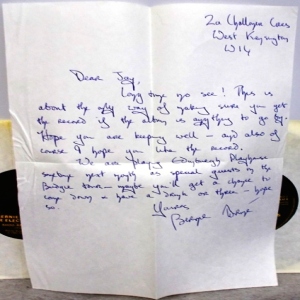 2a Challoner Cres
West Kensington
W14
Dear Jay,
Long time no see! This is
about the only way of making sure you get
the record if the album is anything to go by.
Hope you are keeping well – and also of
course I hope you like the record.
We are playing Playhouse
next month as special guests on the
Budgie tour – maybe you'll get a chance to
come down & have a laugh or three – hope
so.
Yours